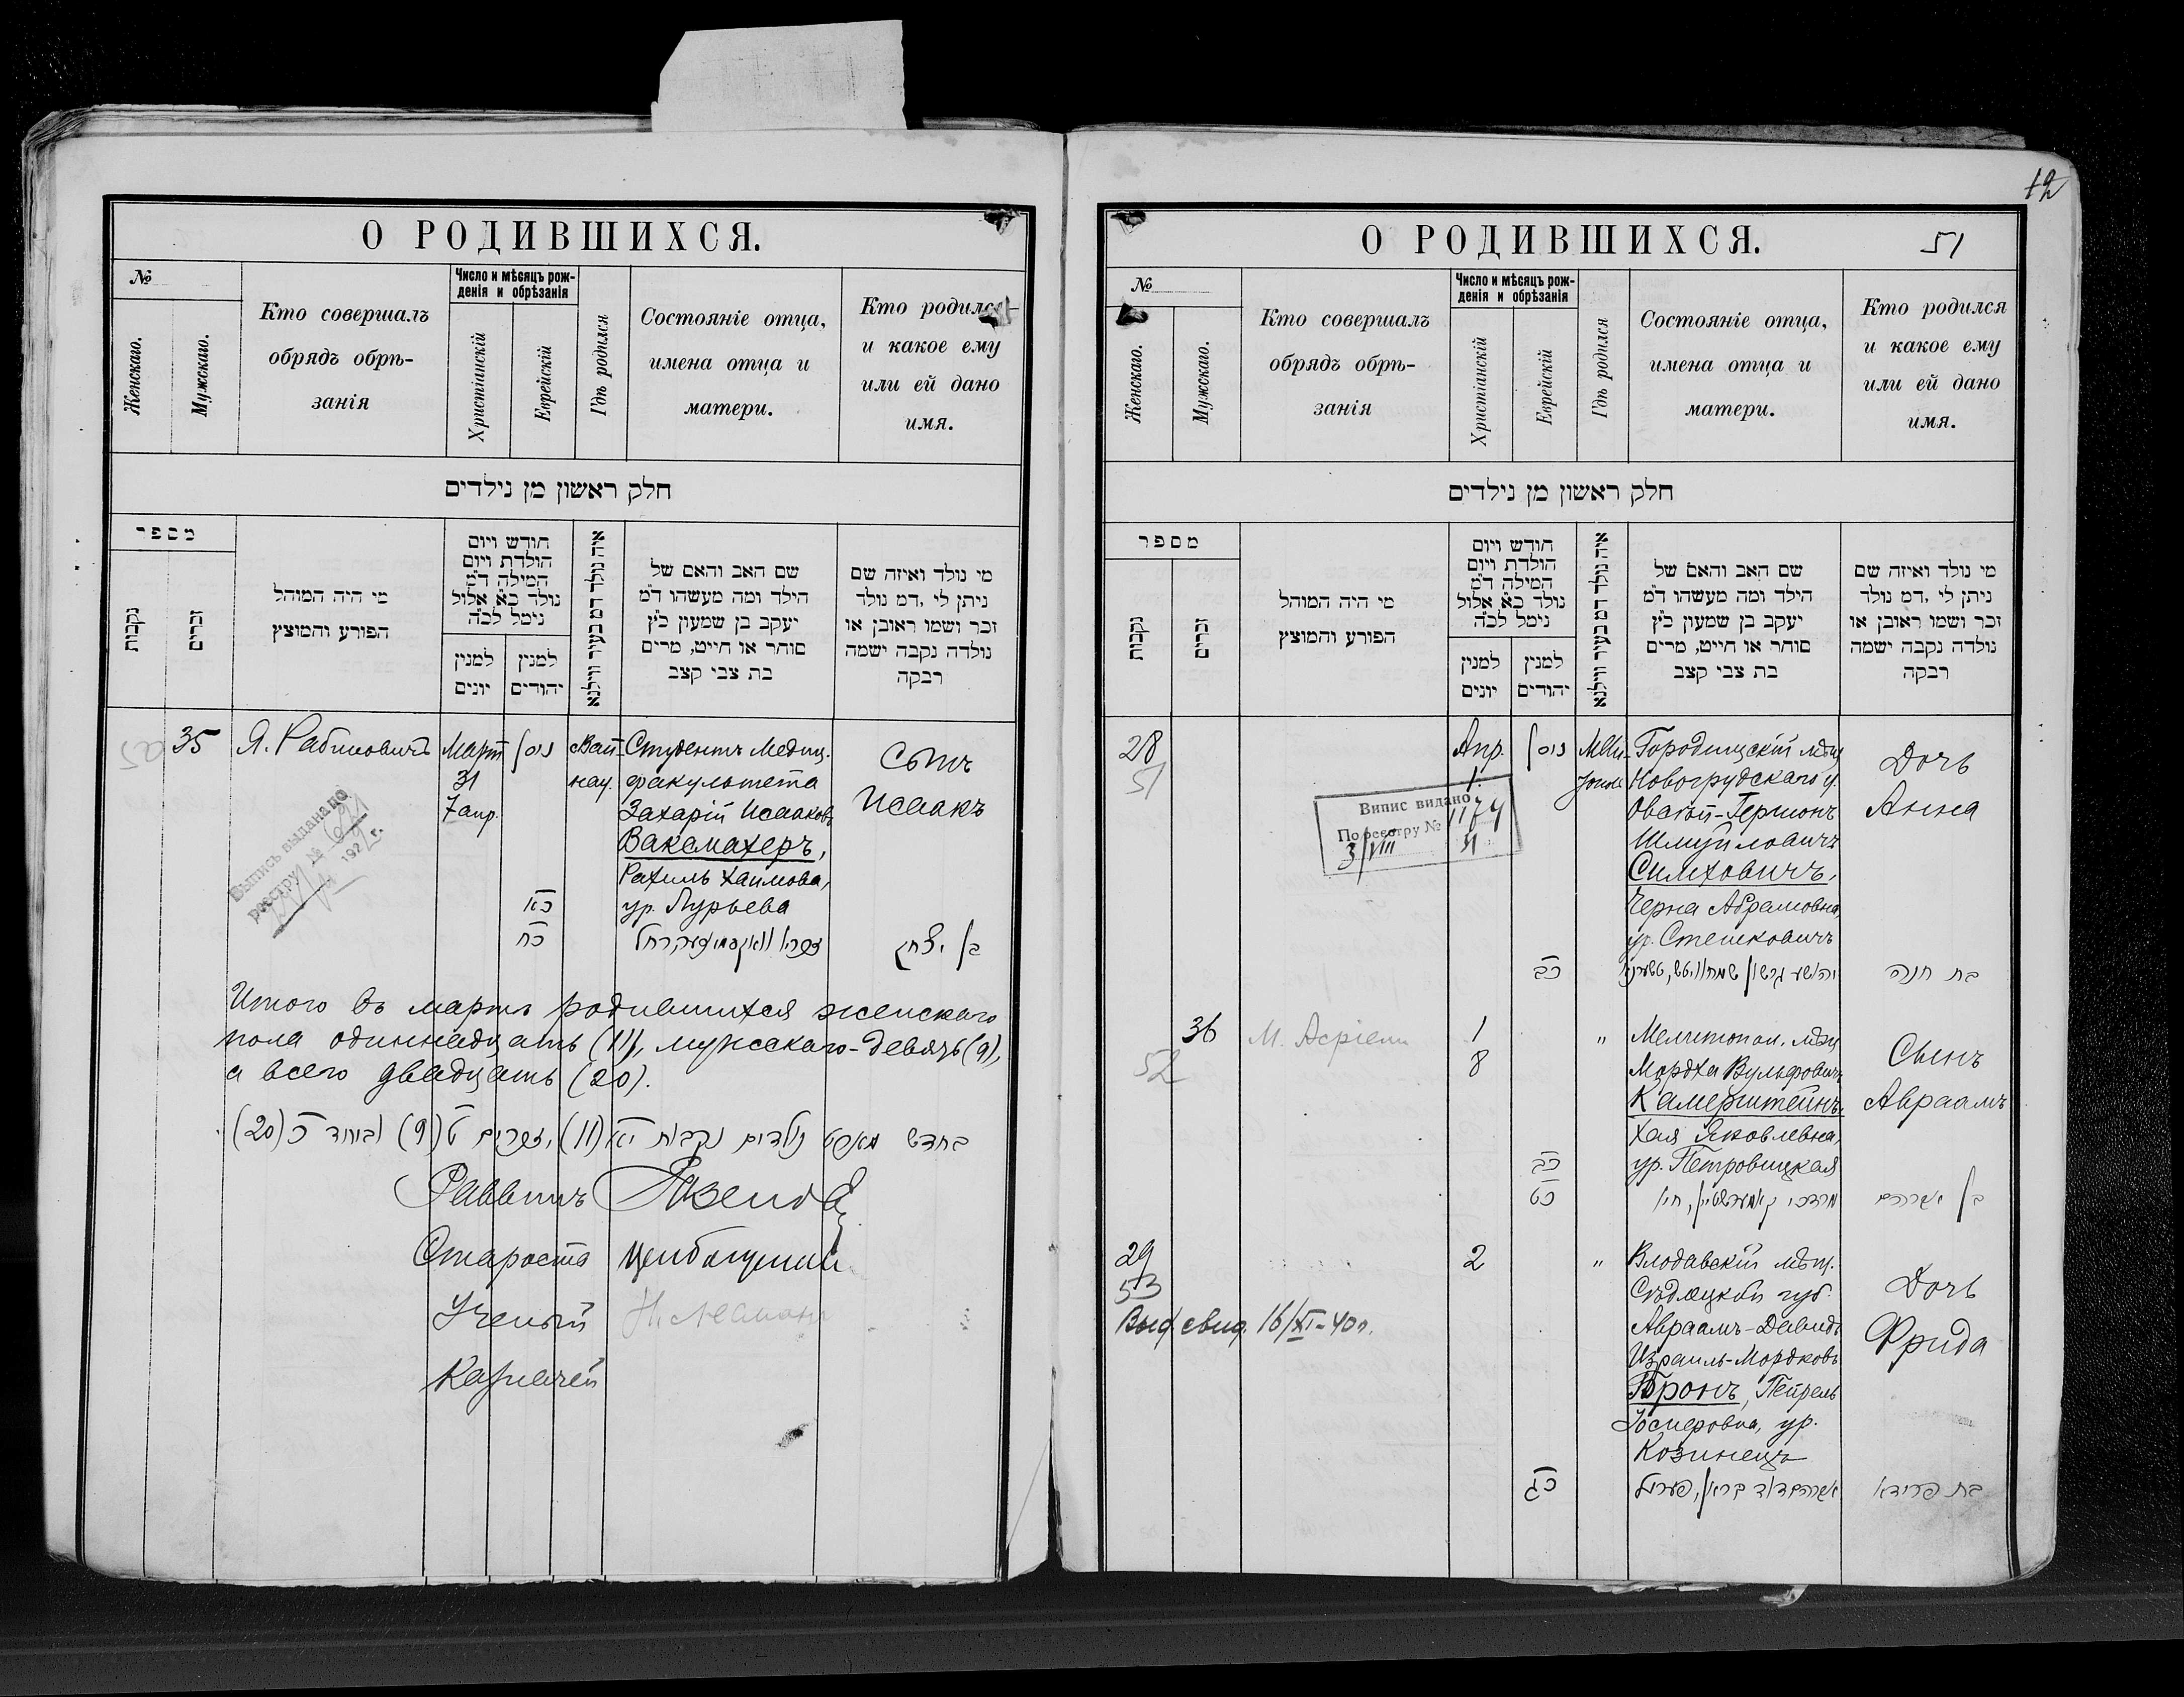 О РОДИВШИХСЯ.
№
Женскаго.
Мужскаго.
Кто совершалъ
обрядъ обрѣ-
занія
Число и мѣсяцъ рож-
денія и обрѣзанія
Христіанскій
Еврейскій
Гдѣ родился
Состояніе отца,
имена отца и
матери.
Кто родился
и какое ему
или ей дано
имя.
חלק ראשון מן נילדים
מספר
נקבות
זכרים
מי היה המוהל
הפורע והמוצץ
חודש ויום
הולדת ויום
המילה ד״מ
נולד כ״א אלול
נימל לכ״ה
למנין
יונים
למנין
יהודים
איה נולד דמ בעיר ווילנא
שם האב והאם של
הילד ומה מעשהו ד״מ
יעקב בן שמעון כ״ץ
סוחר או חייט, מרים
בת צבי קצב
מי נולד ואיזה שם
ניתן לו, דמ נולד
זכר ושמו ראובן או
נולדה נקבה ישמה
רבקה
35
Я. Рабиновичъ
Мартъ
31
7 апр.
ניסן
כא
כח
Студентъ Медиц.
факультета
Захарій Исааковъ
Ваксмахеръ,
Рахиль Хаимова,
ур. Лурьева
Сынъ
Исаакъ
בן יצחק
Выпись выдана по
реестру №
192
Итого въ мартѣ родившихся женскаго
пола одиннадцать (11), мужскаго - девять (9),
а всего двадцать (20).
בחדש מארט נולדים נקבות יא (11) וזכרים ט (9) וביחד כ (20)
Раввинъ
Староста
Ученый
Казначей
12
О РОДИВШИХСЯ.
51
№
Женскаго.
Мужскаго.
Кто совершалъ
обрядъ обрѣ-
занія
Число и мѣсяцъ рож-
денія и обрѣзанія
Христіанскій
Еврейскій
Гдѣ родился
Состояніе отца,
имена отца и
матери.
Кто родился
и какое ему
или ей дано
имя.
חלק ראשון מן נילדים
מספר
נקבות
זכרים
מי היה המוהל
הפורע והמוצץ
חודש ויום
הולדת ויום
המילה ד״מ
נולד כ״א אלול
נימל לכ״ה
למנין
יונים
למנין
יהודים
איה נולד דמ בעיר ווילנא
שם האב והאם של
הילד ומה מעשהו ד״מ
יעקב בן שמעון כ״ץ
סוחר או חייט, מרים
בת צבי קצב
מי נולד ואיזה שם
ניתן לו, דמ נולד
זכר ושמו ראובן או
נולדה נקבה ישמה
רבקה
28
51
Апр.
1.
ניסן
כב
Випис видано
По реестру № 1174
3/VIII
Городищскій мѣщ.
Новогрудскаго у.
Овсѣй-Гершонъ
Шмуйловичъ
Симховичъ,
Черна Абрамовна,
ур. Стешковичъ
יהושע גרשון שמחוויטש, טשערנע
Дочь
Анна
בת חנה
36
52
М. Асріели
1
8
כב
כט
"
Мелитопол. мѣщ.
Мордха Вульфовичъ
Камерштейнъ,
Хая Яковлевна,
ур. Петровицкая
מרדכי קאמערשטיין, חיה
Сынъ
Авраамъ
בן אברהם
29
53
Выд. свид. 16/XI-40 г.
2
כג
"
Влодавскій мѣщ.
Сѣдлецкой губ.
Авраамъ-Давидъ
Израиль-Мордковъ
Бронъ, Пейрель
Іосперовна, ур.
Козинецъ
אברהם דוד בראן, פערל
Дочь
Фрида
בת פרידא